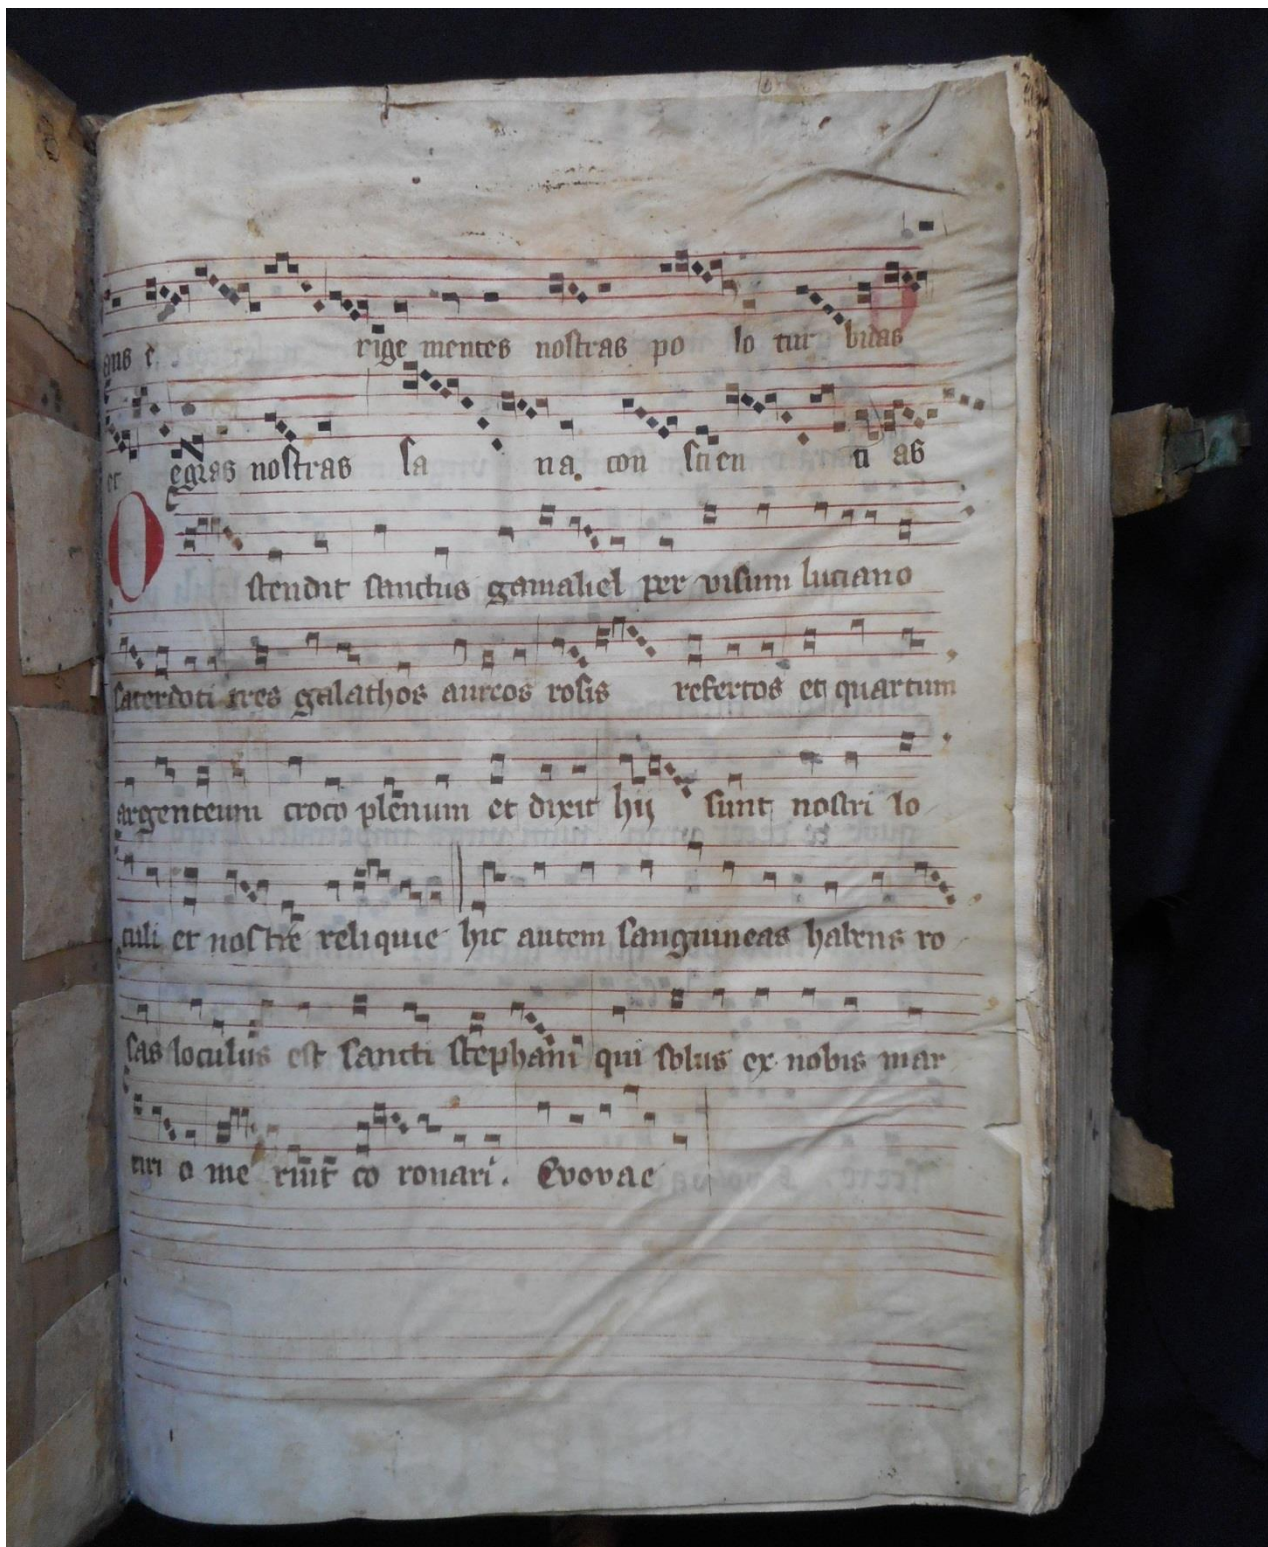 rige mentes nostras po lo tur bidas
et egras nostras sa na con scien ti as
Ostendit sanctus gamaliel per visum luciano
sacerdoti tres galathos aureos rosis refertos et quartum
argenteum croco plenum et dixit hij sunt nostri lo
culi et nostre reliquie hic autem sanguineas habens ro
sas loculus est sancti stephani qui solus ex nobis mar
tiri o me ruit co ronari. Evovae